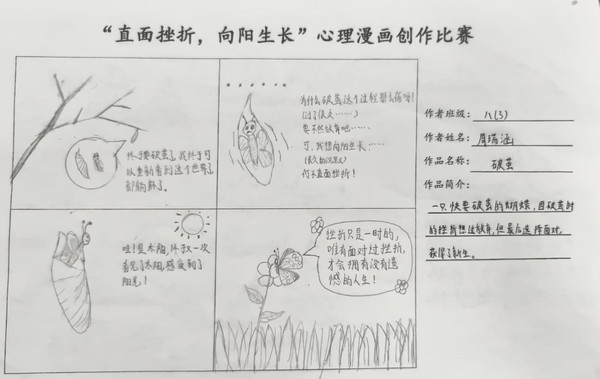 “直面挫折，向阳生长”心理漫画创作比赛
终于要破茧了，我终于可
以重新看到这个世界了
为什么破茧这个过程那么痛呀！
(过了很久……)
要不然放弃吧……
可，我想向阳生长……
何不直面挫折！
哇！是太阳，第一次
看见了太阳，感受到了
阳光！
挫折只是一时的，
唯有面对过挫折，
才会拥有没有遗
憾的人生！
作者班级： 八(3)
作者姓名： 周瑞涵
作品名称： 破茧
作品简介：
一只快要破茧的蝴蝶，因破茧时
的挫折想过放弃，但最后选择面对，
获得了新生。